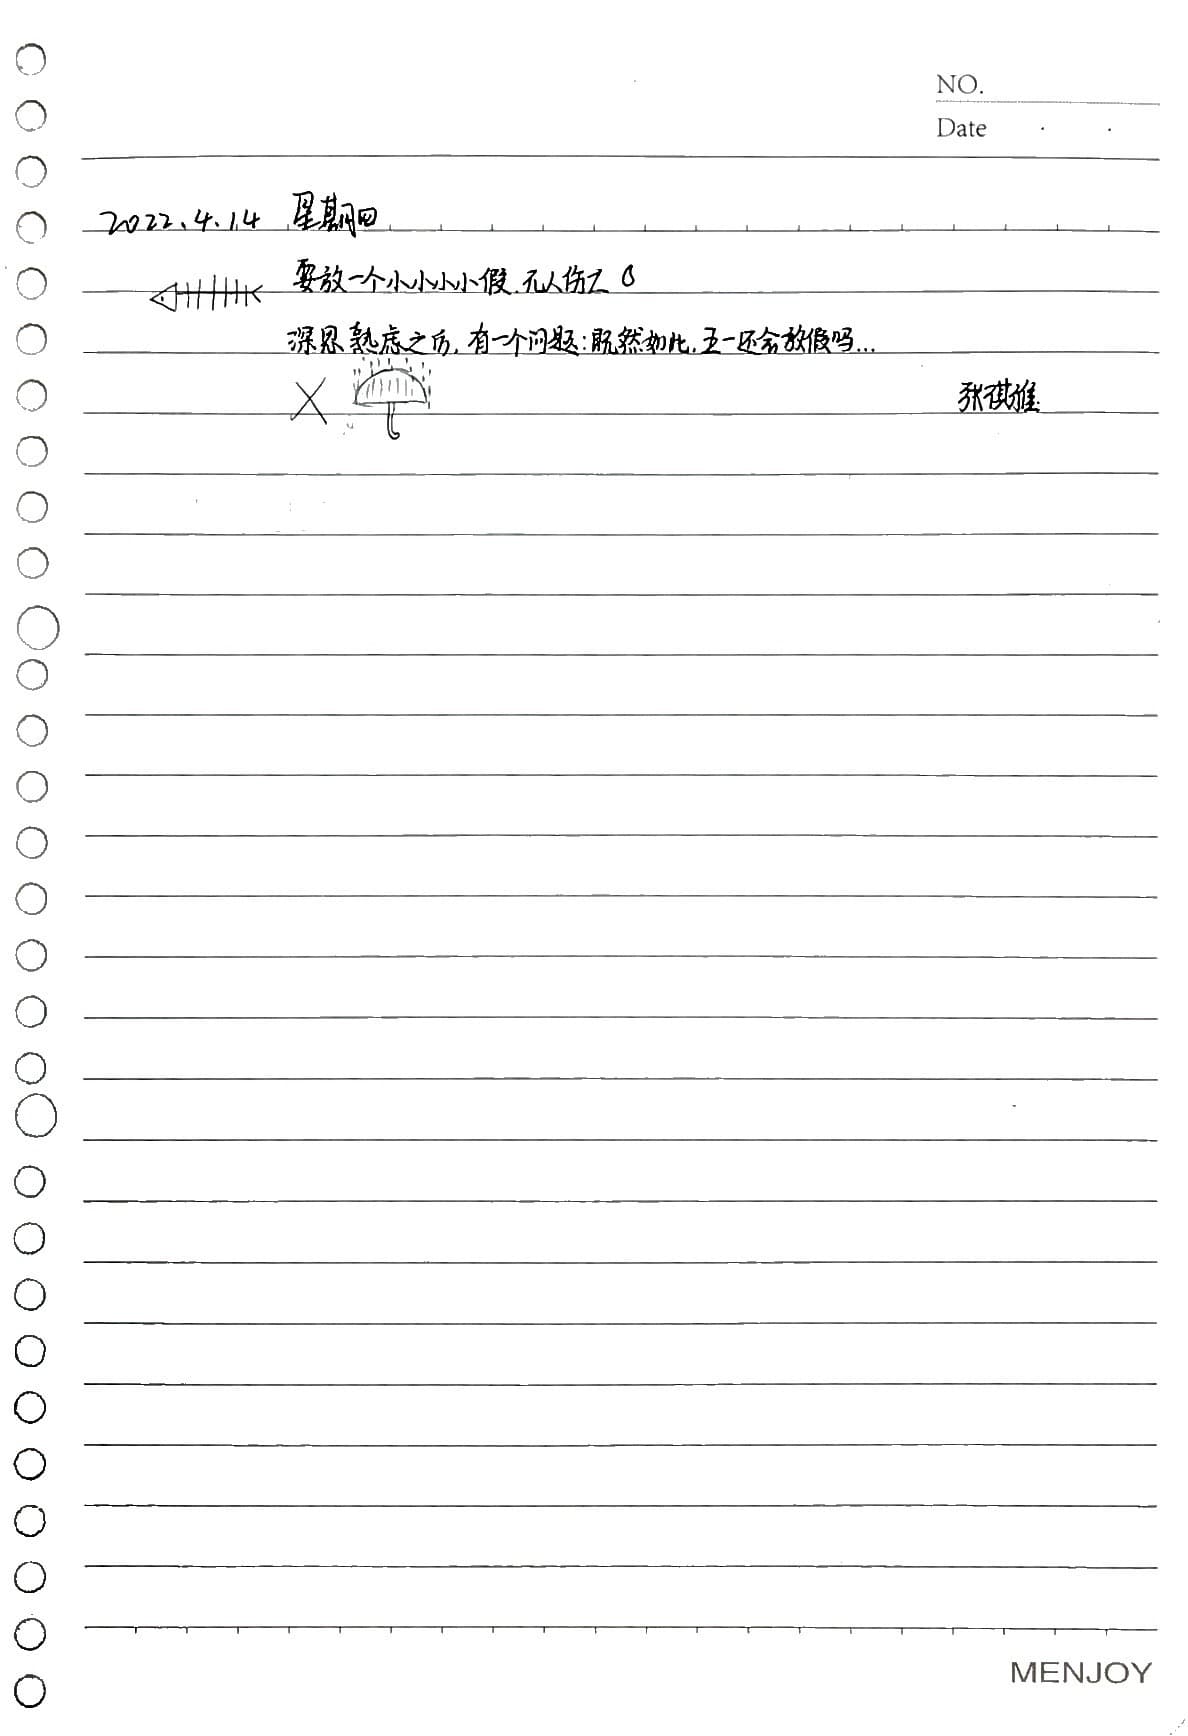 NO.
Date
2022.4.14 星期四
要放一个小小小小假,无人伤亡
深思熟虑之后,有一个问题:既然如此,五一还会放假吗...
张祺雅
MENJOY